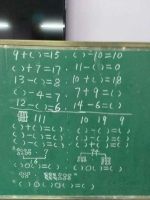 9+( )=15. ( )-10=10
( )+7=17. 11-( )=0
13-( )=8 10+( )=18
( )-4=7 7+9=( )
12-( )=6 14-6=( )
111 10 19 9
( )+( )=( ) ( )-( )=( )
( )+( )=( ) ( )-( )=( )
( )-( )=( ) ( )-( )=( )
( )-( )=( )
?
( )○( )○( )=( )